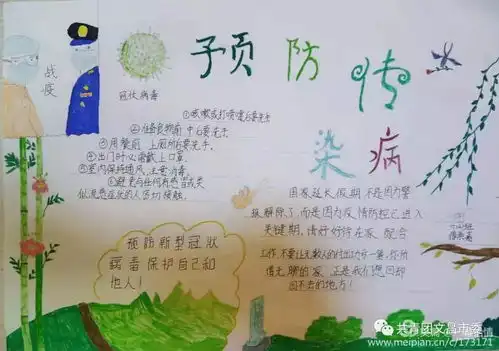 预防传
染病
战疫
冠状病毒
①咳嗽或打喷嚏后要洗手
②准备食物前中后要洗手
③用餐前上厕所后要洗手
④出门时必需戴上口罩
⑤室内保持通风,注意消毒
⑥避免与任何有感冒或类
似流感症状的人密切接触。
预防新型冠状
病毒保护自己和
他人!
国家延长假期不是因为警
报解除了而是因为疫情防控已进入
关键期,请好好待在家配合
工作,不要让无数人的付出功亏一篑,你所
谓无聊的家正是我们想回却
回不去的地方!
共青团文昌市委
www.meipian.cn/c/173171